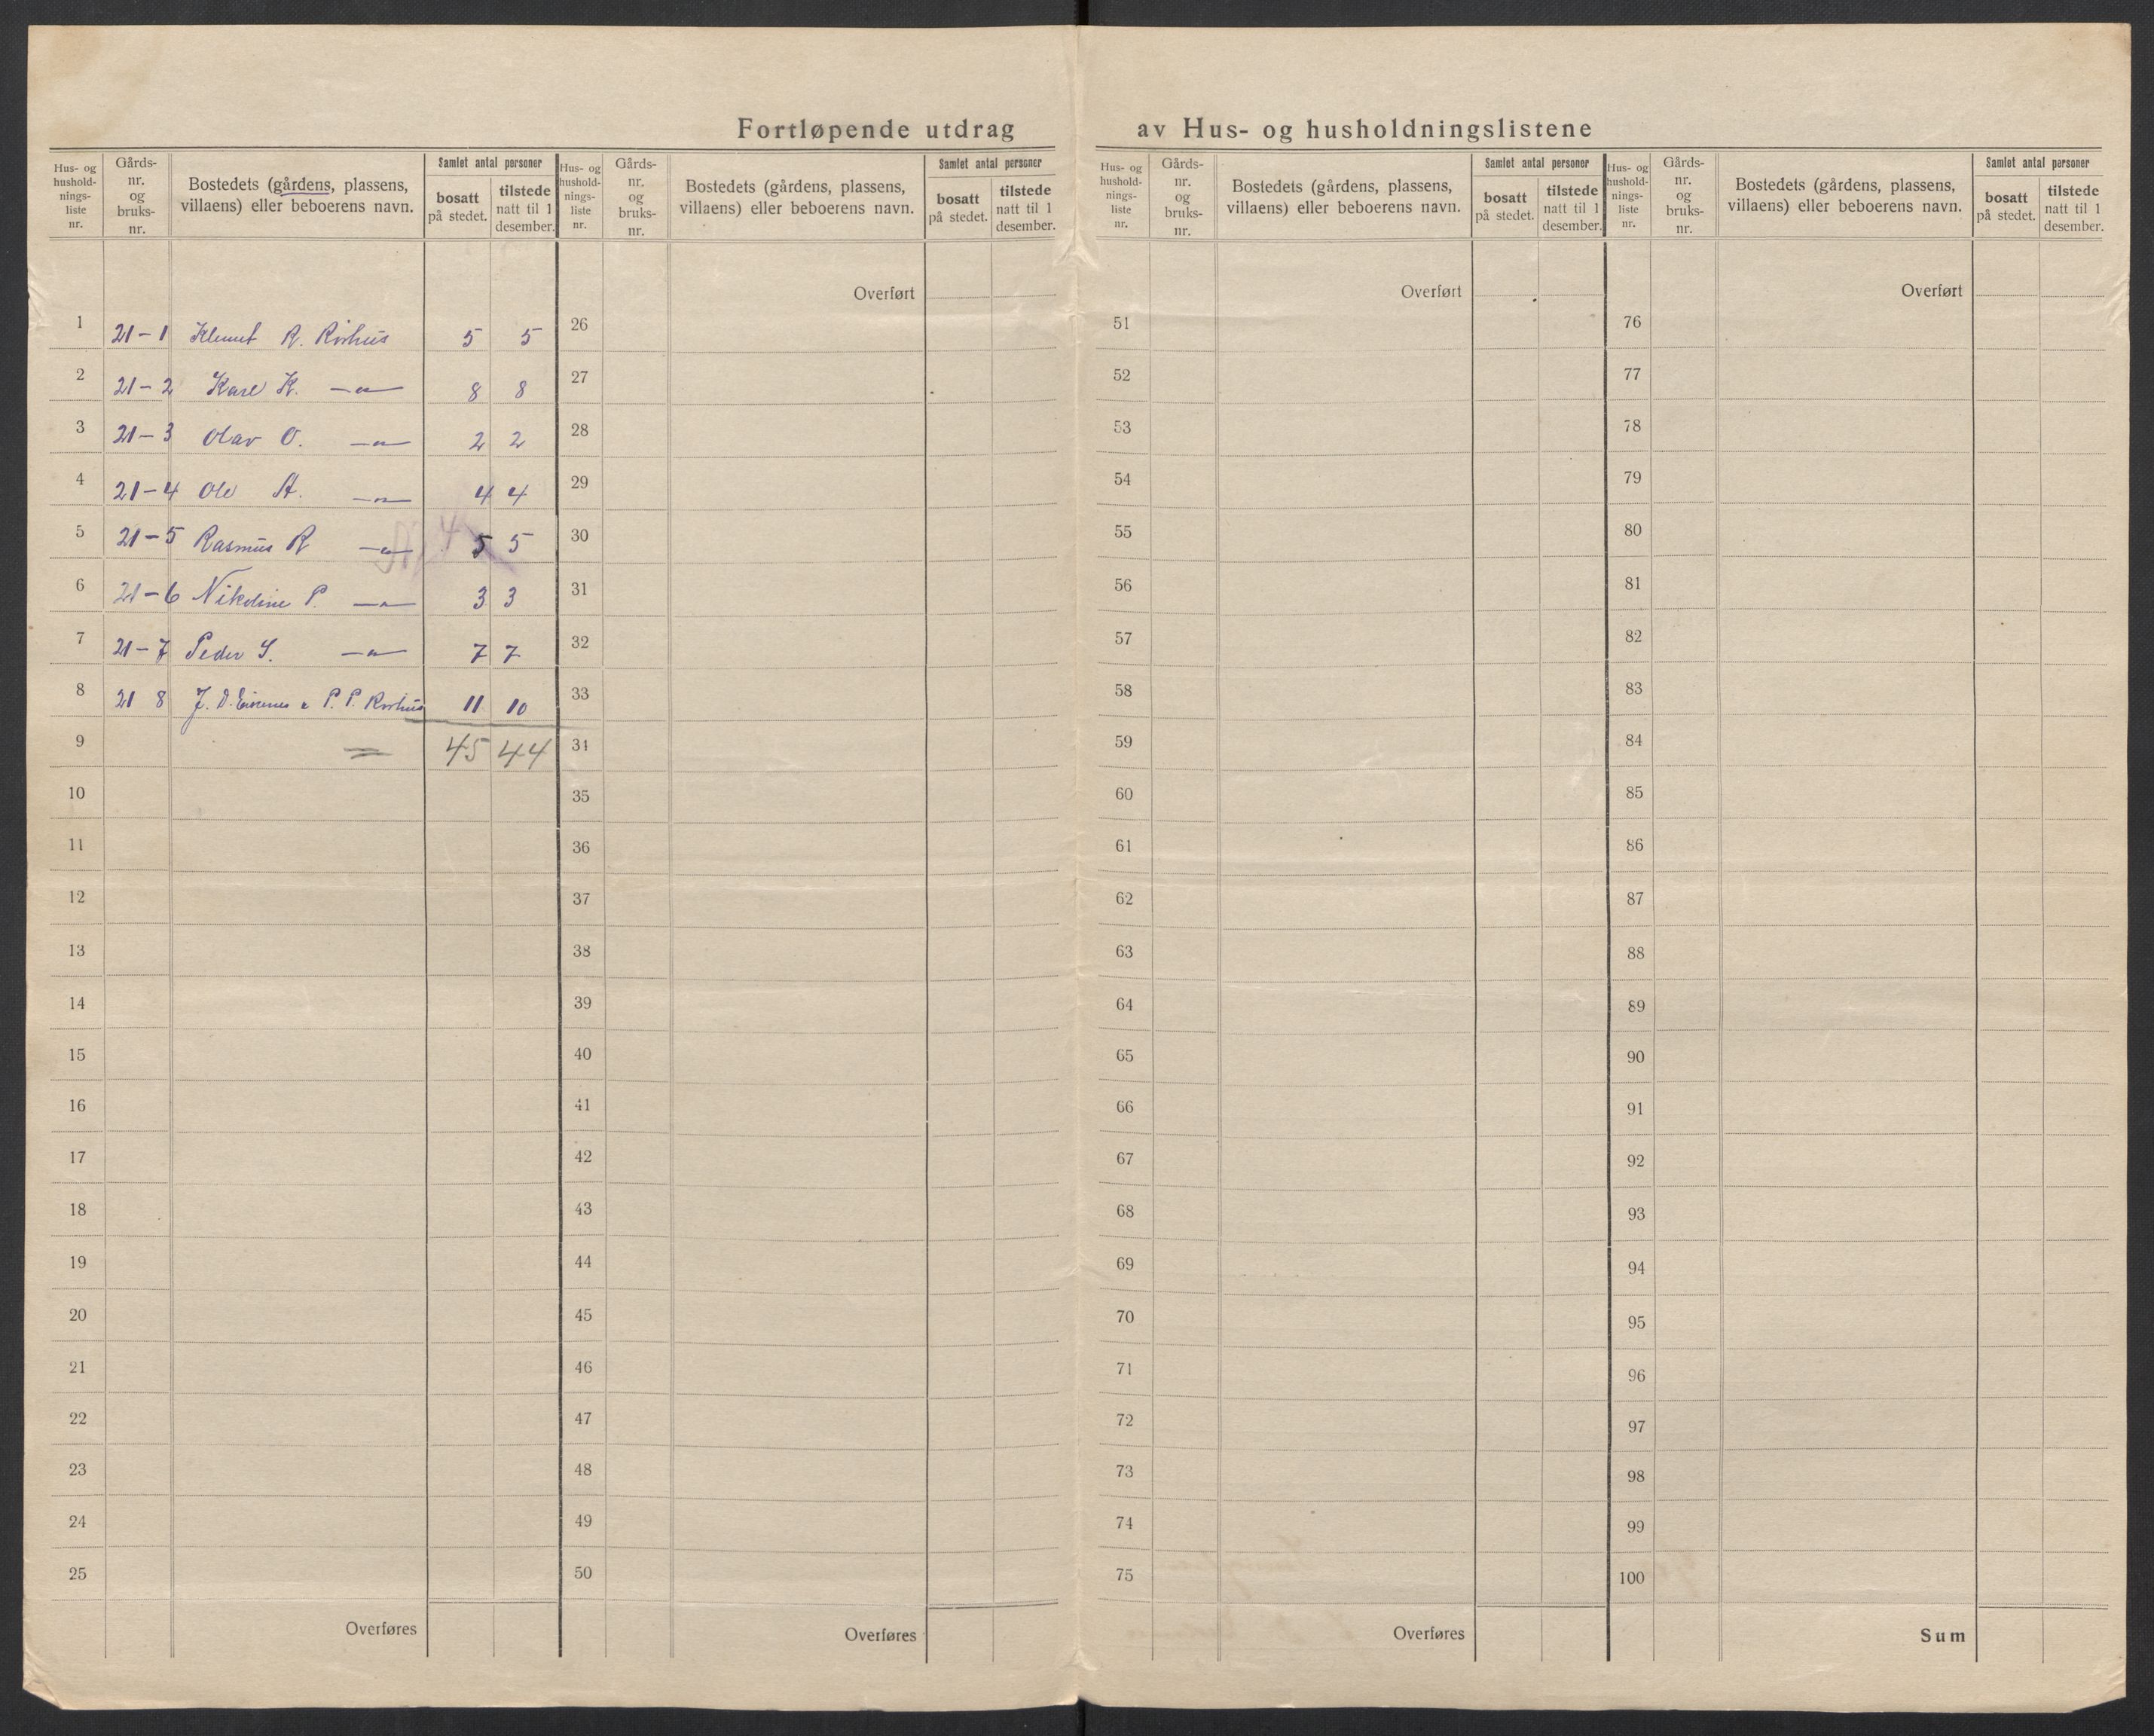 Fortløpende utdrag av Hus- og husholdningslistene
Hus- og hushold-nings-liste nr.
Gårds-nr. og bruks-nr.
Bostedets (gårdens, plassens, villaens) eller beboerens navn.
Samlet antal personer
bosatt på stedet.
tilstede natt til 1 desember.
1 21-1 Klemet R. Rörhus 5 5
2 21-2 Karl K. —"— 8 8
3 21-3 Olav O. —"— 2 2
4 21-4 Ole A. —"— 4 4
5 21-5 Rasmus R —"— 5 5
6 21-6 Nikoline P. —"— 3 3
7 21-7 Peder S. —"— 7 7
8 21 8 J. D. P. P. Rörhus 11 10
9 = 45 44
10
11
12
13
14
15
16
17
18
19
20
21
22
23
24
25
Overføres
Hus- og hushold-nings-liste nr.
Gårds-nr. og bruks-nr.
Bostedets (gårdens, plassens, villaens) eller beboerens navn.
Samlet antal personer
bosatt på stedet.
tilstede natt til 1 desember.
Overført
26
27
28
29
30
31
32
33
34
35
36
37
38
39
40
41
42
43
44
45
46
47
48
49
50
Overføres
Hus- og hushold-nings-liste nr.
Gårds-nr. og bruks-nr.
Bostedets (gårdens, plassens, villaens) eller beboerens navn.
Samlet antal personer
bosatt på stedet.
tilstede natt til 1 desember.
Overført
51
52
53
54
55
56
57
58
59
60
61
62
63
64
65
66
67
68
69
70
71
72
73
74
75
Overføres
Hus- og hushold-nings-liste nr.
Gårds-nr. og bruks-nr.
Bostedets (gårdens, plassens, villaens) eller beboerens navn.
Samlet antal personer
bosatt på stedet.
tilstede natt til 1 desember.
Overført
76
77
78
79
80
81
82
83
84
85
86
87
88
89
90
91
92
93
94
95
96
97
98
99
100
Sum